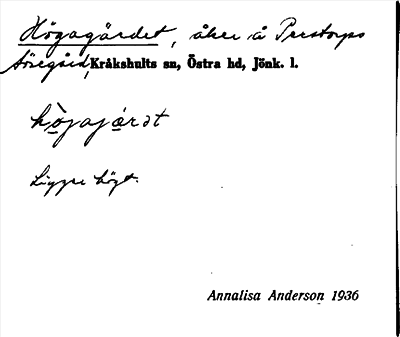 Högagärdet, åker å Perstorps
Söregård, Kråkshults sn, Östra hd, Jönk. l.
hògajárdt
Ligger högt.
Annalisa Anderson 1936